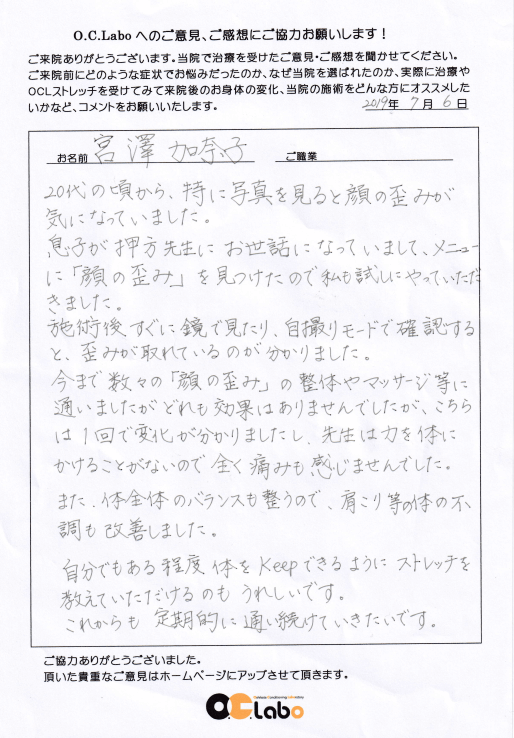 O.C.Labo へのご意見、ご感想にご協力お願いします！
ご来院ありがとうございます。当院で治療を受けたご意見・ご感想を聞かせてください。
ご来院前にどのような症状でお悩みだったのか、なぜ当院を選ばれたのか、実際に治療や
OCLストレッチを受けてみて来院後のお身体の変化、当院の施術をどんな方にオススメした
いかなど、コメントをお願いいたします。
2019年 7月 6日
お名前 宮澤 加奈子 ご職業
20代の頃から、特に写真を見ると顔の歪みが
気になっていました。
息子が押方先生にお世話になっていまして、メニュー
に「顔の歪み」を見つけたので私も試しにやっていただ
きました。
施術後すぐに鏡で見たり、自撮りモードで確認する
と、歪みが取れているのが分かりました。
今まで数々の「顔の歪み」の整体やマッサージ等に
通いましたがどれも効果はありませんでしたが、こちら
は1回で変化が分かりましたし、先生は力を体に
かけることがないので全く痛みも感じませんでした。
また、体全体のバランスも整うので、肩こり等の体の不
調も改善しました。
自分でもある程度体をKeepできるようにストレッチを
教えていただけるのもうれしいです。
これからも定期的に通い続けていきたいです。
ご協力ありがとうございました。
頂いた貴重なご意見はホームページにアップさせて頂きます。
O.C.Labo